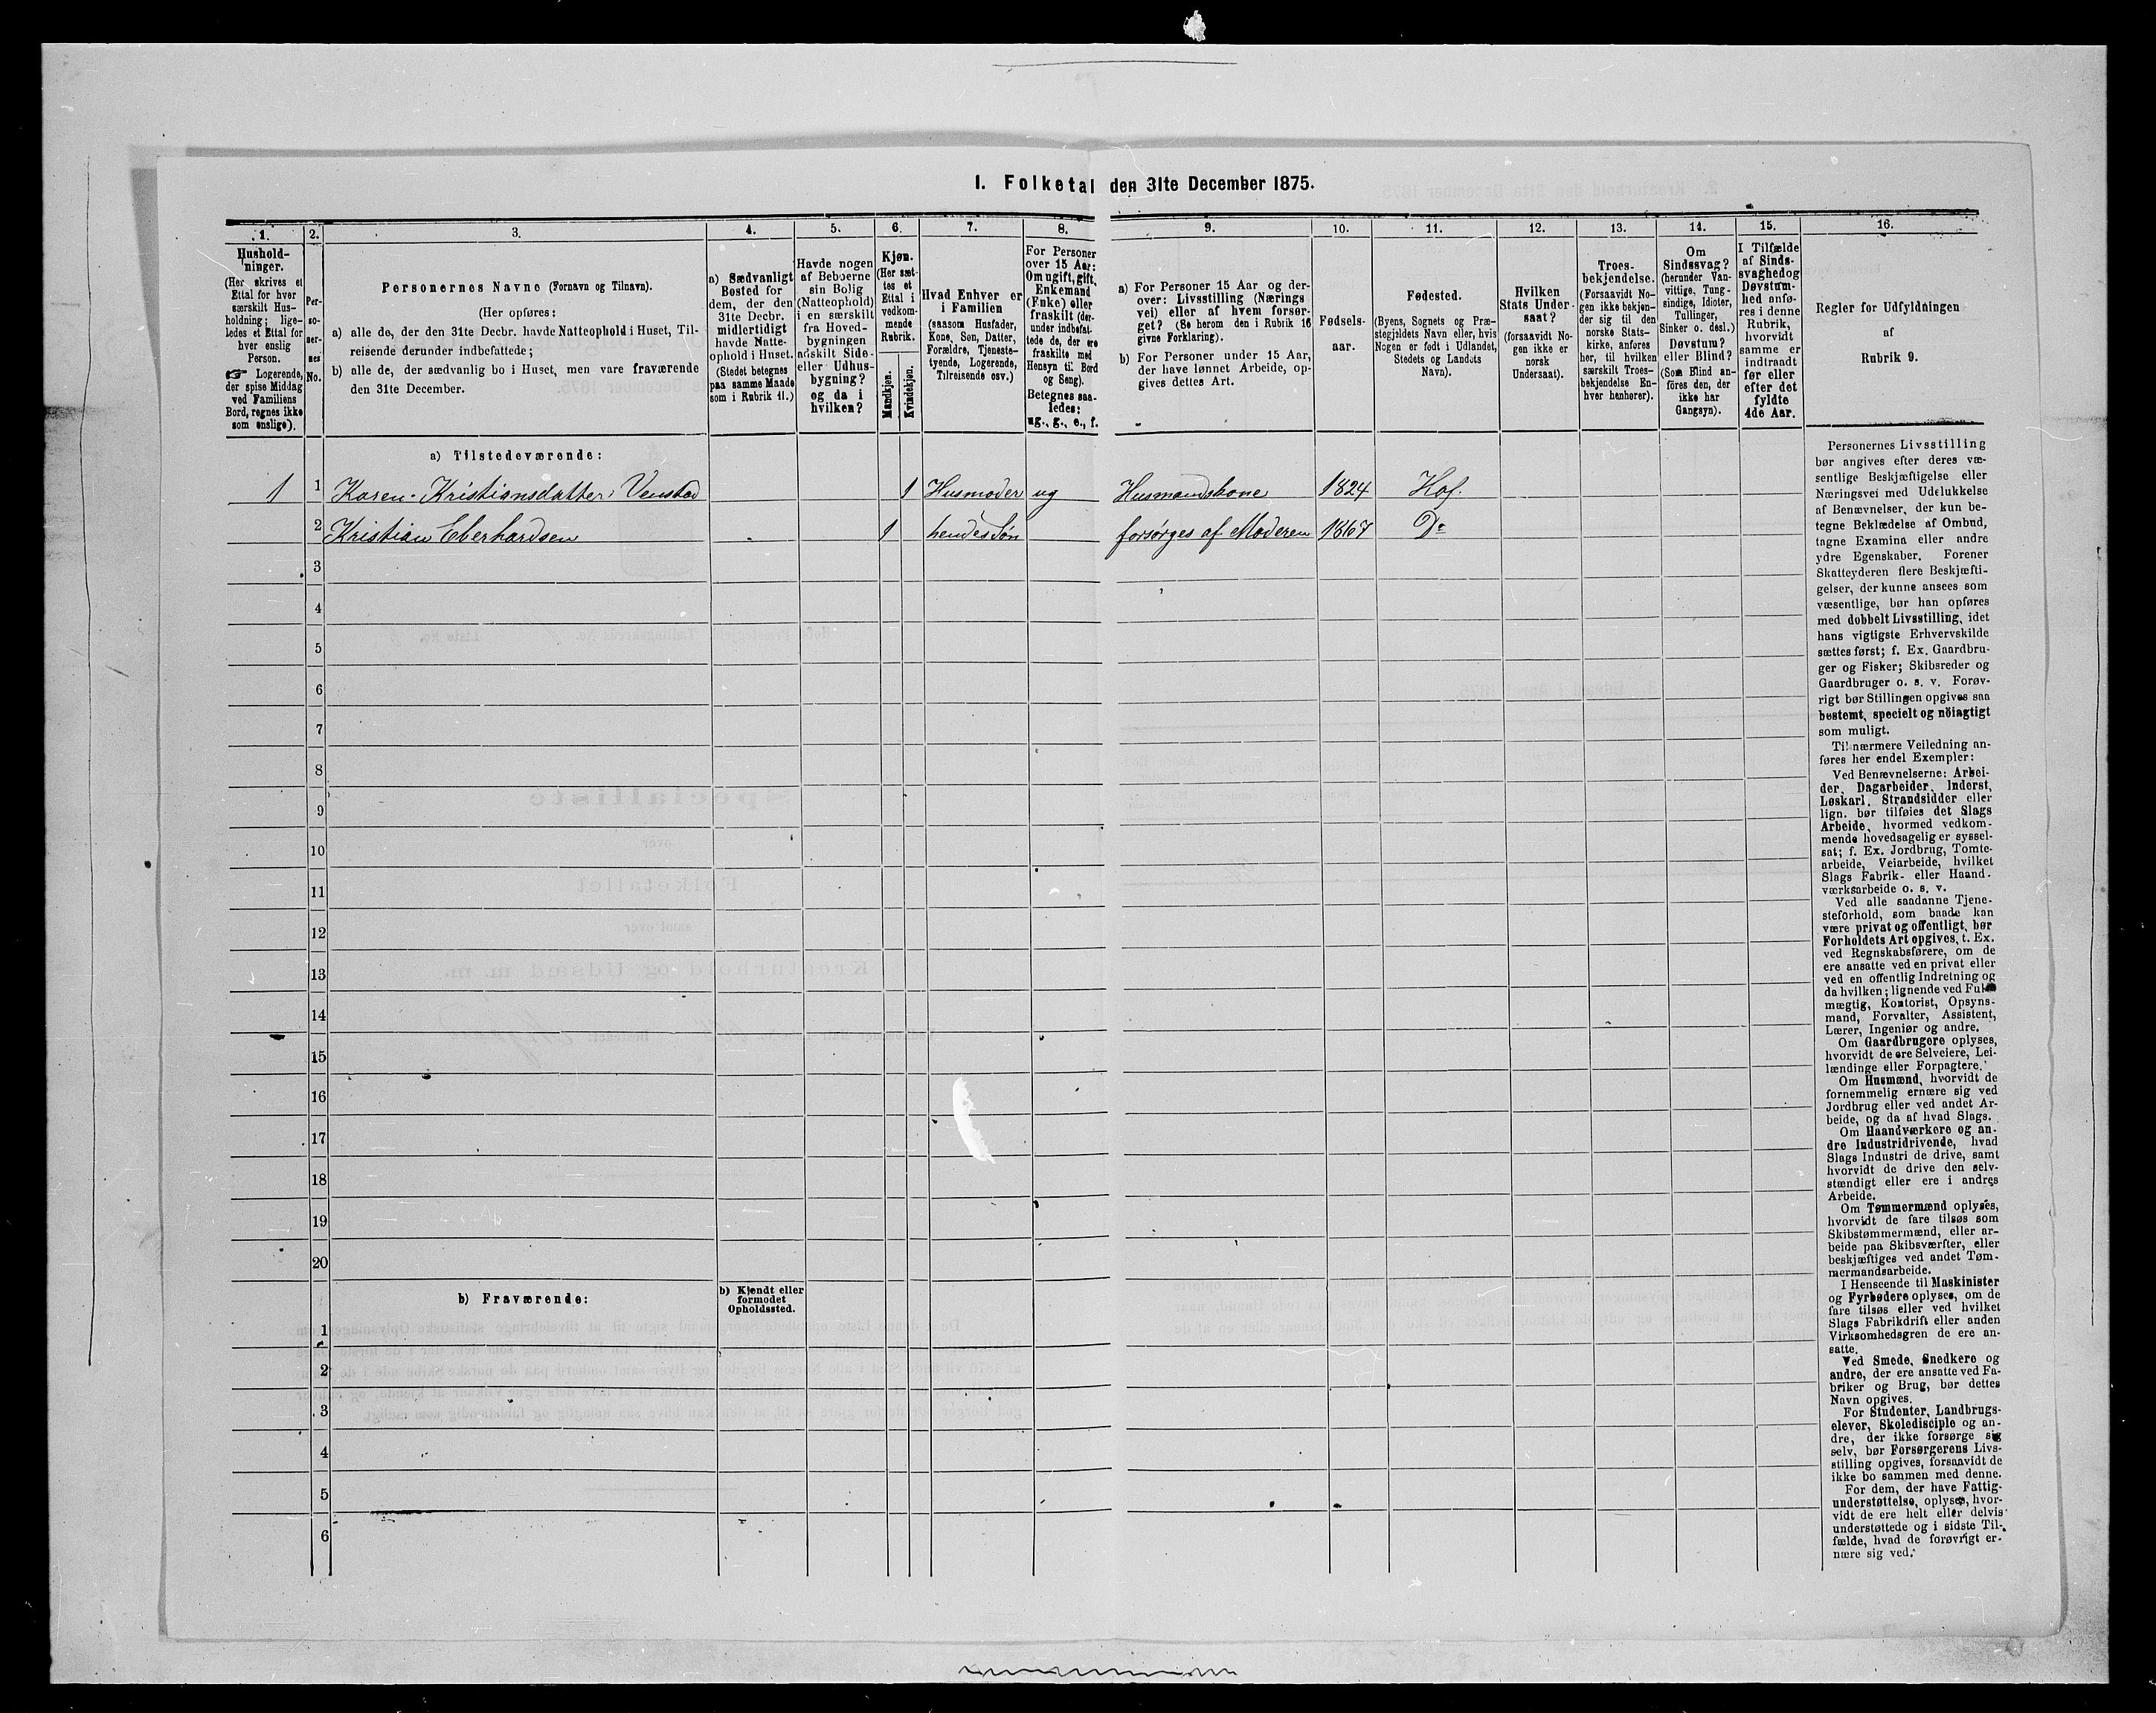 1. Folketal den 31te December 1875.
1.
2.
3.
4.
5.
6.
7.
8.
9.
10.
11.
12.
13.
14.
15.
16.
Hushold-
ninger.
(Her skrives et
Ettal for hver
særskilt Hus-
holdning; lige-
ledes et Ettal for
hver enslig
Person.
☞ Logerende,
der spise Middag
ved Familiens
Bord, regnes ikke
som enslige).
Per-
so-
ner-
nes
No.
Personernes Navne (Fornavn og Tilnavn).
(Her opføres:
a) alle de, der den 31te Decbr. havde Natteophold i Huset, Til-
reisende derunder indbefattede;
b) alle de, der sædvanlig bo i Huset, men vare fraværende
den 31te December.
a) Sædvanligt
Bosted for
dem, der den
31te Decbr.
midlertidigt
havde Natte-
ophold i Huset.
(Stedet betegnes
paa samme Maade
som i Rubrik 11.)
Havde nogen
af Beboerne
sin Bolig
(Natteophold)
i en særskilt
fra Hoved-
bygningen
adskilt Side-
eller Udhus-
bygning?
og da i
hvilken?
Kjøn.
(Her sæt-
tes et
Ettal i
vedkom-
mende
Rubrik.
Mandkjøn.
Kvindekjøn.
Hvad Enhver er
i Familien
(saasom Husfader,
Kone, Søn, Datter,
Forældre, Tjeneste-
tyende, Logerende,
Tilreisende osv.)
For Personer
over 15 Aar:
Om ugift, gift,
Enkemand
(Enke) eller
fraskilt (der-
under indbefat-
tede de, der ere
fraskilte med
Hensyn til Bord
og Seng).
Betegnes saa-
ledes:
ug., g., e., f.
a) For Personer 15 Aar og der-
over: Livsstilling (Nærings
vei) eller af hvem forsør-
get? (Se herom den i Rubrik 16
givne Forklaring).
b) For Personer under 15 Aar,
der have lønnet Arbeide, op-
gives dettes Art.
Fødsels-
aar.
Fødested.
(Byens, Sognets og Præ-
stegjeldets Navn eller, hvis
Nogen er født i Udlandet,
Stedets og Landets
Navn).
Hvilken
Stats Under-
saat?
(forsaavidt No-
gen ikke er
norsk
Undersaat).
Troes-
bekjendelse.
(Forsaavidt No-
gen ikke bekjen-
der sig til den
norske Stats-
kirke, anføres
her, til hvilken
særskilt Troes-
bekjendelse En-
hver henhører).
Om
Sindssvag?
(herunder Van-
vittige, Tung-
sindige, Idioter,
Tullinger,
Sinker o. desl.)
Døvstum?
eller Blind?
(Som Blind an-
føres den, der
ikke har
Gangsyn).
I Tilfælde
af Sinds-
svaghed og
Døvstum-
hed anfø-
res i denne
Rubrik,
hvorvidt
samme er
indtraadt
før eller
efter det
fyldte
4de Aar.
Regler for Udfyldningen
af
Rubrik 9.
a) Tilstedeværende:
1 1 Karen Kristiansdatter Venstad 1 Husmoder ug Husmandskone 1824 Hof.
2 Kristian Eberhardsen 1 hendes Søn forsørges af Moderen 1867 Do
3
4
5
6
7
8
9
10
11
12
13
14
15
16
17
18
19
20
b) Fraværende:
b) Kjendt eller
formodet
Opholdssted.
1
2
3
4
5
6
Personernes Livsstilling
bør angives efter deres væ-
sentlige Beskjæftigelse eller
Næringsvei med Udelukkelse
af Benævnelser, der kun be-
tegne Beklædelse af Ombud,
tagne Examina eller andre
ydre Egenskaber. Forener
Skatteyderen flere Beskjæfti-
gelser, der kunne ansees som
væsentlige, bør han opføres
med dobbelt Livsstilling, idet
hans vigtigste Erhvervskilde
sættes først; f. Ex. Gaardbru-
ger og Fisker; Skibsreder og
Gaardbruger o. s. v. Forøv-
rigt bør Stillingen opgives saa
bestemt, specielt og nöiagtigt
som muligt.
Til nærmere Veiledning an-
føres her endel Exempler:
Ved Benævnelserne: Arbei-
der, Dagarbeider, Inderst,
Løskarl, Strandsidder eller
lign. bør tilføies det Slags
Arbeide, hvormed vedkom-
mende hovedsagelig er syssel-
sat; f. Ex. Jordbrug, Tomte-
arbeide, Veiarbeide, hvilket
Slags Fabrik- eller Haand-
værksarbeide o. s. v.
Ved alle saadanne Tjene-
steforhold, som baade kan
være privat og offentligt, bør
Forholdets Art opgives, t. Ex.
ved Regnskabsførere, om de
ere ansatte ved en privat eller
ved en offentlig Indretning og
da hvilken; lignende ved Fuld-
mægtig, Kontorist, Opsyns-
mand, Forvalter, Assistent,
Lærer, Ingeniør og andre.
Om Gaardbrugere oplyses,
hvorvidt de ere Selveiere, Lei-
lændinge eller Forpagtere.
Om Husmænd, hvorvidt de
fornemmelig ernære sig ved
Jordbrug eller ved andet Ar-
beide, og da af hvad Slags.
Om Haandværkere og an-
dre Industridrivende, hvad
Slags Industri de drive, samt
hvorvidt de drive den selv-
stændigt eller ere i andres
Arbeide.
Om Tømmermænd oplyses,
hvorvidt de fare tilsøs som
Skibstømmermænd, eller ar-
beide paa Skibsværfter, eller
beskjæftiges ved andet Tøm-
mermandsarbeide.
I Henseende til Maskinister
og Fyrbødere oplyses, om de
fare tilsøs eller ved hvilket
Slags Fabrikdrift eller anden
Virksomhedsgren de ere an-
satte.
Ved Smede, Snedkere og
andre, der ere ansatte ved Fa-
briker og Brug, bør dettes
Navn opgives.
For Studenter, Landbrugs-
elever, Skoledisciple og an-
dre, der ikke forsørge sig
selv, bør Forsørgerens Livs-
stilling opgives, forsaavidt de
ikke bo sammen med denne.
For dem, der have Fattig-
understøttelse, oplyses, hvor-
vidt de ere helt eller delvis
understøttede og i sidste Til-
fælde, hvad de forøvrigt er-
nære sig ved.